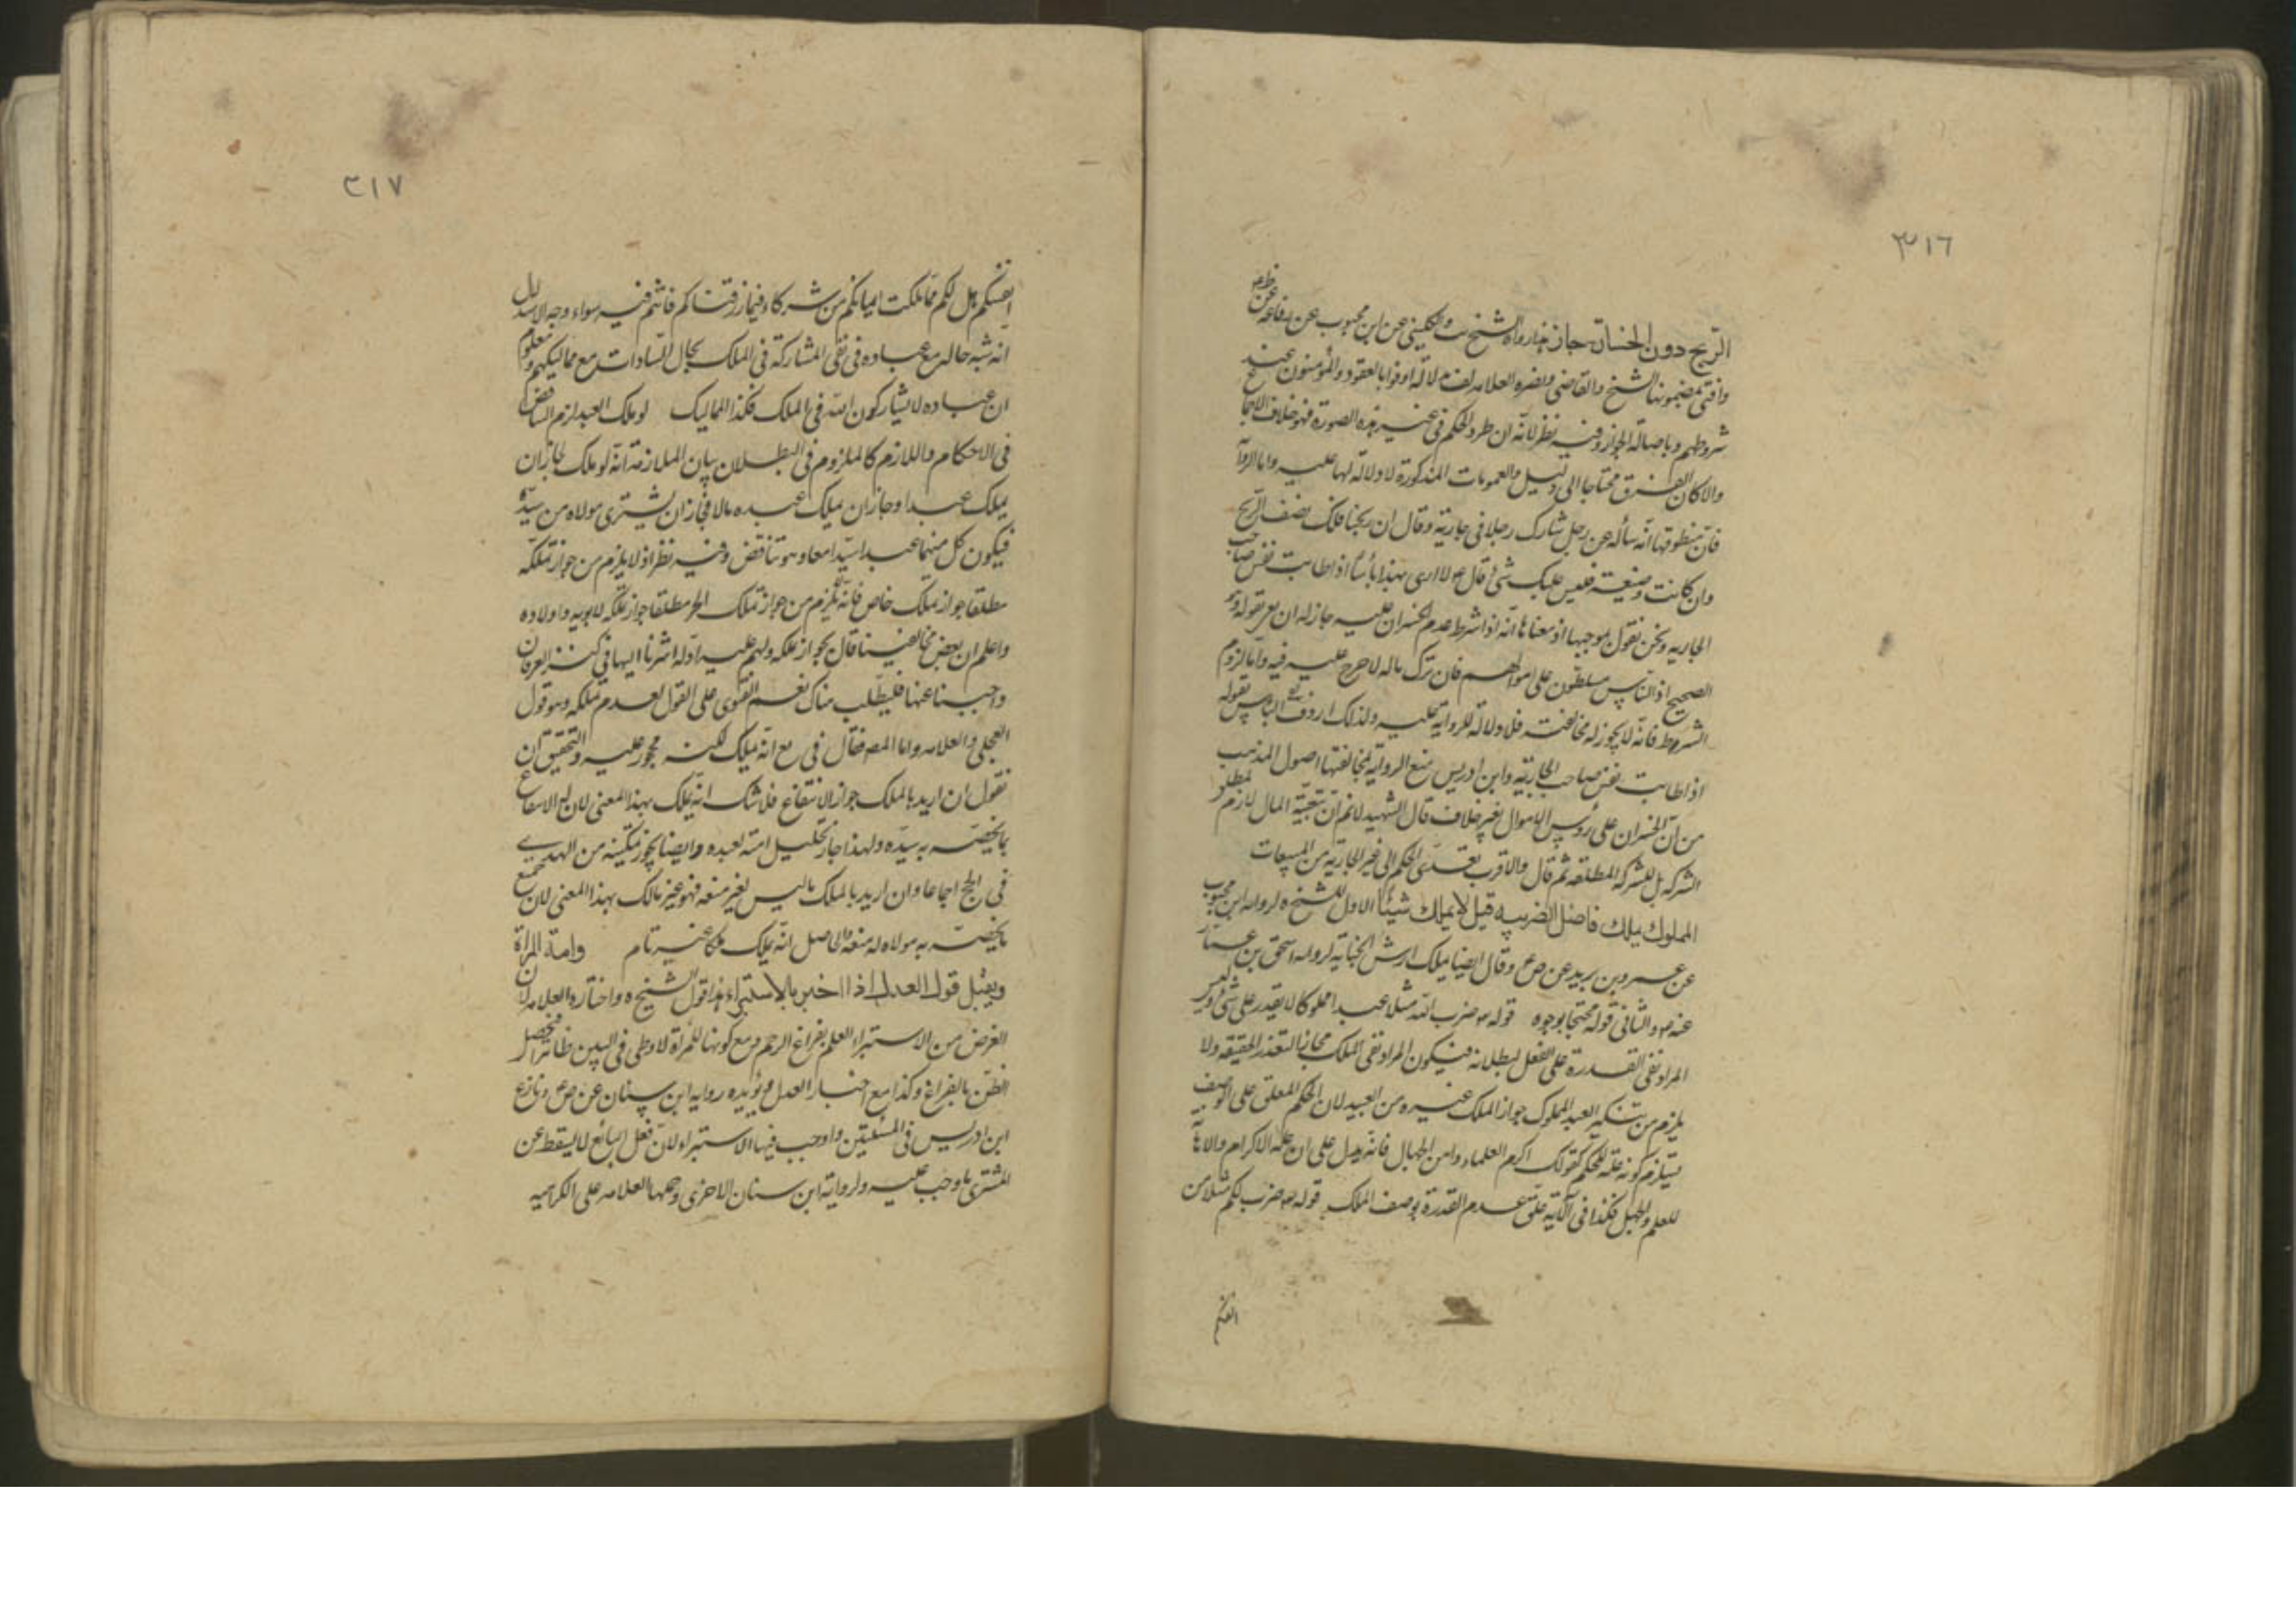 ٣١٦
الربح دون الخسارة جاز هذا رواه الشيخ والكليني عن ابن محبوب عن رفاعة عن
وافتى بمضمونها الشيخ والقاضي ونصره العلامه لدلالة اوفوا بالعقود والمؤمنون عند
شروطهم وباصالة الجواز وفيه نظر لانه ان طرد الحكم في غير هذه الصورة فهو خلاف
والا كان الفرق محتاجا الى دليل والعمومات المذكورة لا دلالة لها عليه واما الرواية
فان منطوقها انه سأله عن رجل شارك رجلا في جارية وقال ان ربحنا فلك نصف الربح
وان كانت وضيعة فليس عليك شئ قال لا ارى بهذا بأسا اذا طابت نفس صاحب
الجاريه ونحن نقول بموجبها اذ معناها انه اذا شرط عدم الخسران عليه جاز له ان
الصحيح اذ الناس مسلطون على اموالهم فان ترك ماله لا حرج عليه فيه واما لزوم
الشروط فانه لا يجوز له مخالفته فلا دلالة للرواية عليه ولذلك اردف البأس بقوله
اذا طابت نفس صاحب الجارية وابن ادريس منع الرواية لمخالفتها اصول المذهب
من ان الخسران على رؤس الاموال بغير خلاف قال الشهيد لا نم ان تبعية المال لازم لمطلق
الشركه بل للشركه المطلقه ثم قال والاقرب تعدى الحكم الى غير الجارية من المبيعات
المملوك يملك فاضل الضريبه قيل لا يملك شيئا الاول للشيخ لروايه ابن محبوب
عن عمر بن يزيد عن ص ع وقال ايضا يملك ارش الجناية لروايه اسحق بن عمار
عنه ع والثاني قوله محتجا بوجوه قوله ضرب الله مثلا عبدا مملوكا لا يقدر على شئ وليس
المراد نفى القدرة على الفعل لبطلانه فيكون المراد نفى الملك مجازا لتعذر الحقيقه ولا
يلزم من تنكير العبد المملوك جواز الملك غيره من العبيد لان الحكم المعلق على الوصف
يستلزم كونه علة للحكم كقولك اكرم العلماء واهن الجهال فانه يدل على ان علة الاكرام والاهانة
للعلم والجهل فكذا في الآية علق عدم القدرة بوصف الملك قوله ضرب لكم مثلا من
انفسكم
٣١٧
انفسكم هل لكم مما ملكت ايمانكم من شركاء فيما رزقناكم فانتم فيه سواء وجه الاستدلال
انه شبه حاله مع عباده في نفى المشاركة في الملك بحال السادات مع مماليكهم ومعلوم
ان عباده لا يشاركون الله في الملك فكذا المماليك لو ملك العبد لزم التناقض
في الاحكام واللازم كالملزوم في البطلان بيان الملازمة انه لو ملك لجاز ان
يملك عبدا وجاز ان يملك عبده مالا فجاز ان يشترى مولاه من سيده
فيكون كل منهما عبدا سيدا معا وهو تناقض وفيه نظر اذ لا يلزم من جواز تملكه
مطلقا جواز تملك خاص فانه لا يلزم من جواز تملك الحر مطلقا جواز تملكه لابويه واولاده
واعلم ان بعض مخالفينا قال بجواز تملكه ولهم عليه ادلة اشرنا اليها في كنز العرفان
واجبنا عنها فليطلب هناك نعم الفتوى على القول بعدم تملكه وهو قول
العجلى والعلامه واما المص فقال في ع انه يملك لكنه محجور عليه والتحقيق ان
نقول ان اريد بالملك جواز الانتفاع فلا شك انه يملك بهذا المعنى لان له الانتفاع
بما يخصه به سيده ولهذا جاز تحليل امته لعبده وايضا يجوز تمكينه من الهدي
في الحج اجماعا وان اريد بالملك ما ليس لغير منعه فهو غير مالك بهذا المعنى لان جميع
ما يخصه به مولاه له منعه والحاصل انه يملك ملكا غير تام وامة المراة
ويقبل قول العدل اذا اخبر بالاستبراء هذا قول الشيخ واختاره العلامه لان
الغرض من الاستبراء العلم بفراغ الرحم ومع كونها للمرأة لا وطى في البين ظاهرا فيحصل
الظن بالفراغ وكذا مع اخبار العدل ويؤيده رواية ابن سنان عن ص ع ونازع
ابن ادريس في المسئلتين واوجب فيها الاستبراء لان فعل البائع لا يسقط عن
المشترى ما وجب عليه ولرواية ابن سنان الاخرى وحملها العلامه على الكراهيه